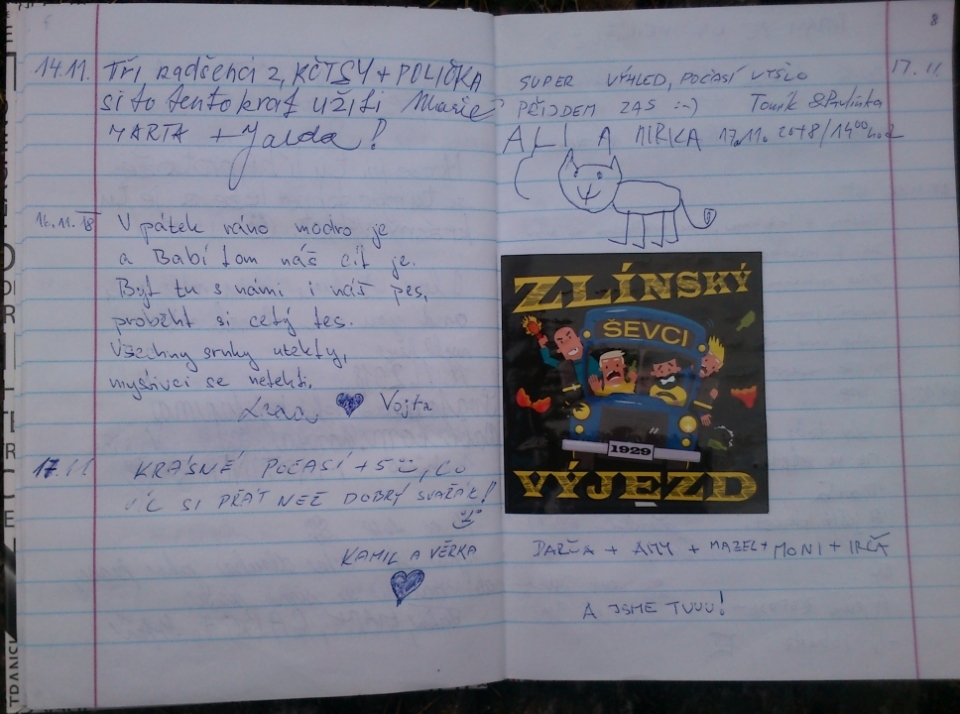 14.11. Tři nadšenci z KČTSY + POLIČKA
si to tentokrát užili Marie
MARTA + Jalda!
16.11.18 V pátek ráno modro je
a Babí lom náš cíl je.
Byl tu s námi i náš pes,
proběhl si celý les.
Všechny srnky utekly,
myslivci se nelekli.
Vojta
17.11 KRÁSNÉ POČASÍ +5, CO
VÍC SI PŘÁT NEŽ DOBRÝ SVAŘÁK!
KAMIL A VĚRKA
8
17.11.
SUPER VÝHLED, POČASÍ VYŠLO
PŘIJDEM ZAS :-) Tomík & Pavlínka
ALI A MIRKA 17.11.2018/1400hod
ZLÍNSKÝ
ŠEVCI
1929
VÝJEZD
DARČA + AMY + MAZEL + MONI + IRČA
A JSME TUUU!